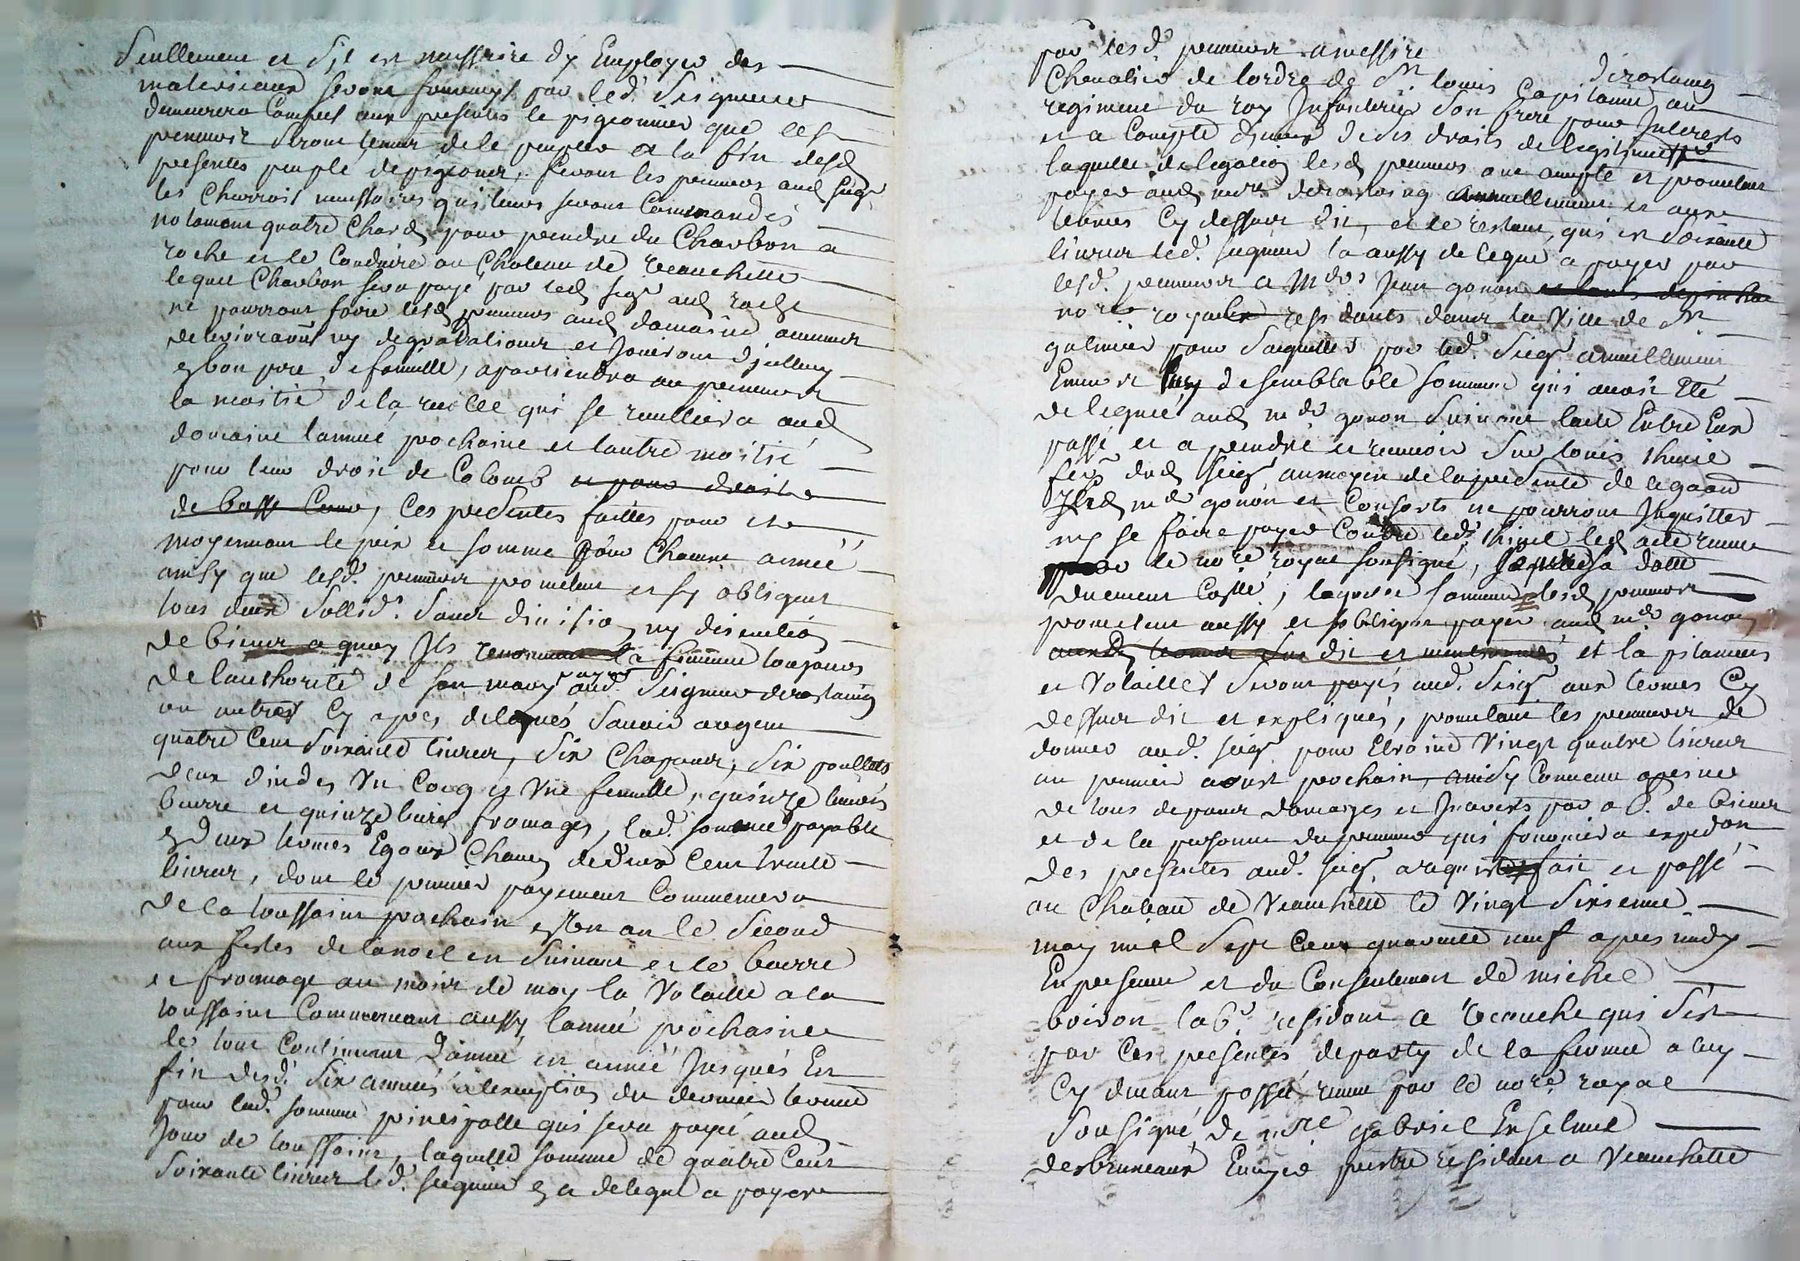 Seullement et s'il est nessaire d'y Employer des
materieaux seront fournis par led. Seigneur
demeurera Compris aux presentes le pigeonnier que les
preneurs seront tenus de le peupler et a la fin desd.
presentes peuplé de pigeons, seront les preneurs aud. seigr.
les Charrois nessaires qui leurs seront Commandés
notament quatre Chard pour prendre du Charbon a
roche et le Conduire au Chateau de veauchette
lequel Charbon sera payé par led. seigr. aud. roche
ne pourront faire lesd. preneurs aud. domaine aucunes
deterioraôns ny degradations et Jouiront d'jcelluy
en bon pere de famille, apartiendra au preneurs
la moitié de la recolte qui se receullera aud.
domaine l'année prochaine et l'autre moitié
pour leur droit de Colomb et pour droit de
de basse Cour, Ces presentes faittes pour et
moyennant le prix et somme pour Chacune année
ainsy que lesd. preneurs promettent et s'y obligent
tous deux sollidt. sans division ny discution
de biens a quoy Ils renoncent la femme toujours
de l'authorité de son mary payer aud. Seigneur derostaing
ou autres Cy apres delegués Savoir argent
quatre Cent soixante livres, six Chapons, six poullets
deux dindes Un Coq et Une femelle, quinze livres
beurre et quinze livres fromages, lad. somme payable
En Deux termes Egaux Chacun de deux Cent trente
livres, dont le premier payement Commencera
de la toussaint prochain en un an le Second
aux festes de la noel en suivant et le beurre
et fromage au mois de may la Volaille a la
toussaint Commencant aussy l'année prochaine
le tout Continuant d'année en année Jusqués En
fin desd. six années a l'exeption du dernier terme
pour lad. somme principalle qui sera payé aud.
Jour de toussaint, laquelle somme de quatre Cent
soixante livres led. seigneur En a delegué a payer
par lesd. preneurs a messire
derostaing
Chevalier de l'ordre de St. louis Capitaine au
regiment du roy Infanterie son frere pour Interests
et a Compte d'iceux de ses droits de legitime
laquelle delegation lesd. preneurs ont accepté et promettent
payer aud. mre. derostaing annuellement et aux
termes Cy dessus dit, et le restant, qui est soixante
livres led. seigneur la aussy delegué a payer par
lesd. preneurs a Mdrs Jean gonon
nore royaler residants dans la Ville de St
galmier pour s'aquitter par led. seigr. annuellement
Envers luy de semblable somme qui avoit Eté
delegué aud. mdr gonon suivant lacte Entre Eux
passé et a prendre et recevoir sur louis thinel
fer. dud. seigr. au moyen de la presente delegaôn
led. mdr gonon et Consorts ne pourront Inquitter
ny se faire payer Contre led. thinel led. acte receu
par le nore. royal soussigné, sa datte
duement Collé, laquelle somme lesd. preneurs
promettent aussy et s'obligent payer aud. mdr gonon
aux termes sus dit et mentionnés et la pitances
et Volailles seront payés aud. seigr. aux termes Cy
dessus dit et expliqués, promettant les preneurs de
donner aud. seigr. pour Etreine Vingt quatre livres
au premier aoust prochain, ainsy Convenu a peine
de tous depans domarges et Interests par o p. de biens
et de la personne du preneur qui fournira expedôn
des presentes aud. seigr. a requis fait et passé
au Chateau de Veauchette le Vingt sixieme
may mil Sept Cent quarante neuf apres midy
En presence et du Consentement de michel
boiron labr. residant a veauche qui s'est
par Ces presentes departy de la ferme a luy
Cy devant passée receu par le nore. royal
soussigné, de mre gabriel Enselme
desbruneaux Ecuyer prestre residant a Veauchette